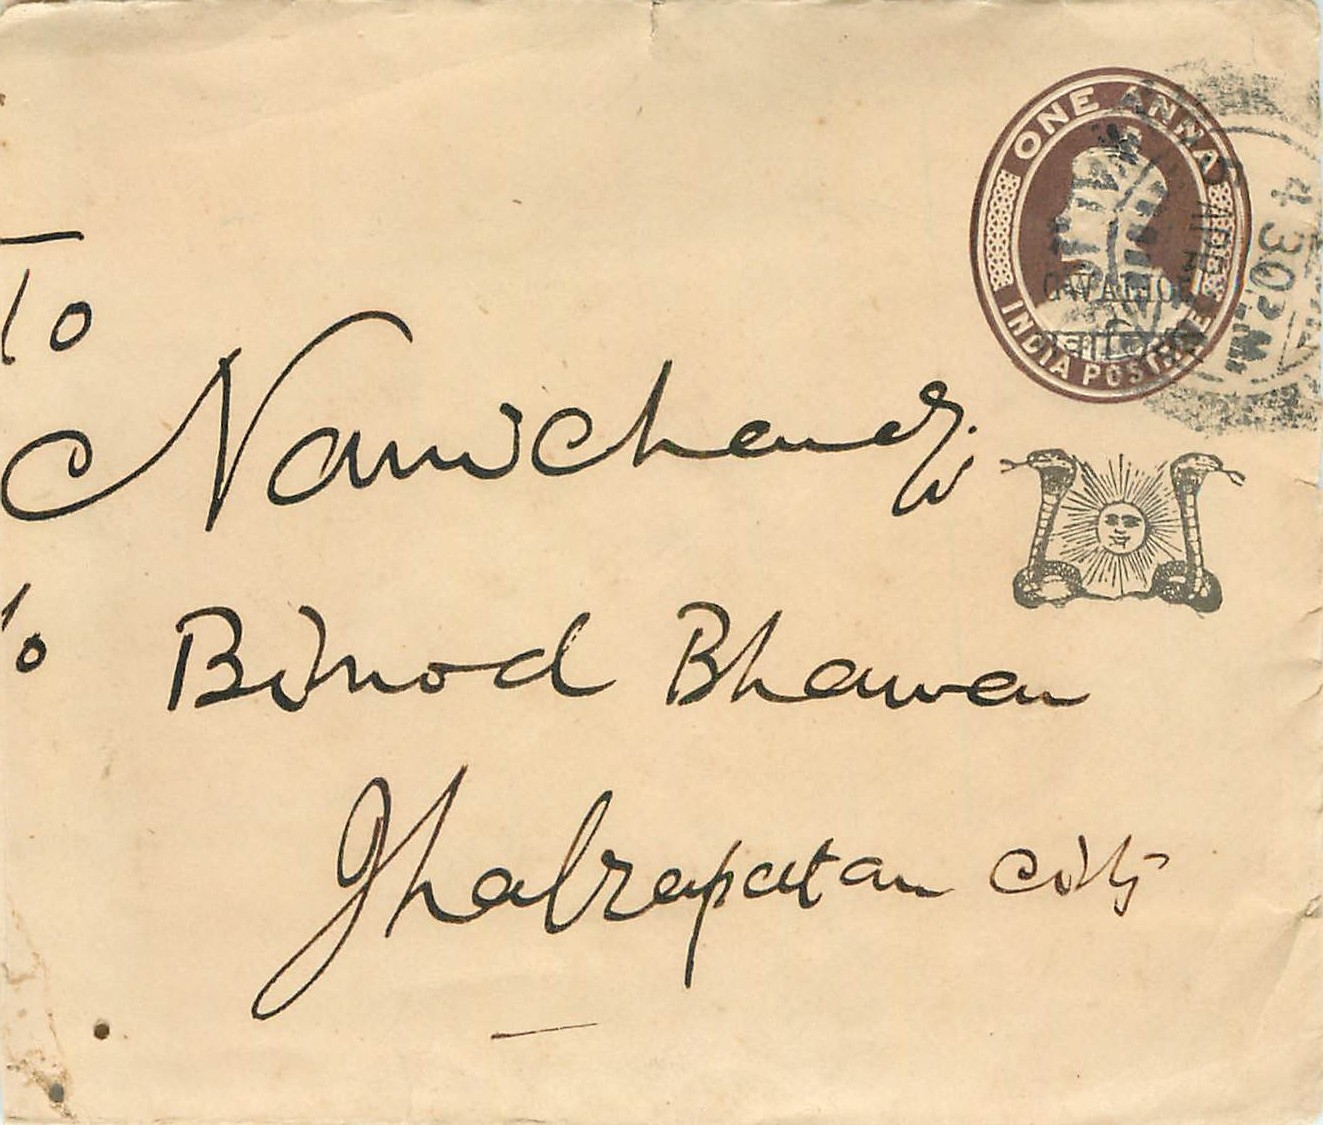 ONE ANNA
INDIA POSTAGE
GWALIOR
4 30 PM
To
Nanichandj
c/o Binod Bhawan
Jhalrapatan City